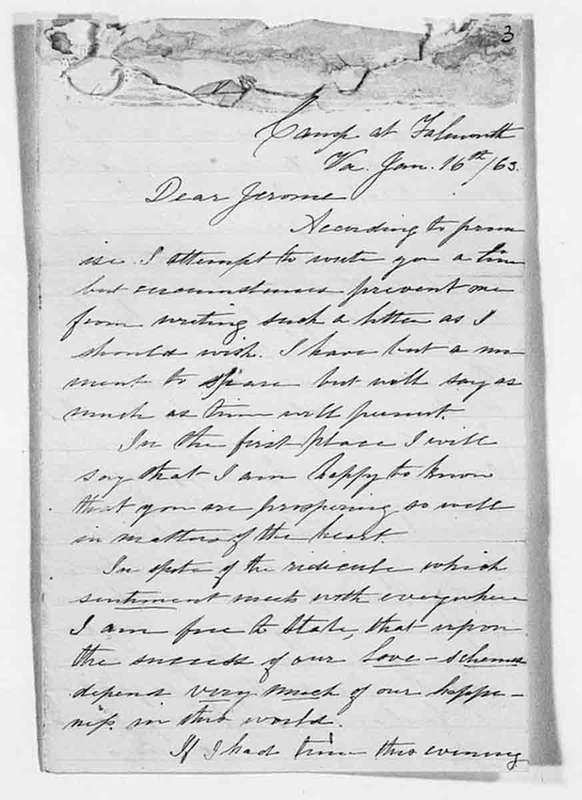 3
Camp at Falmouth
Va. Jan. 16th/63.
Dear Jerome
According to prom
ise I attempt to write you a line
but circumstances prevent me
from writing such a letter as I
should wish. I have but a mo-
ment to spare but will say as
much as time will permit.
In the first place I will
say that I am happy to know
that you are prospering so well
in matters of the heart
In spite of the ridicule which
sentiment meets with everywhere
I am free to State, that upon
the success of our Love-schemes
depend very much of our happi-
ness in this world.
If I had time this evening